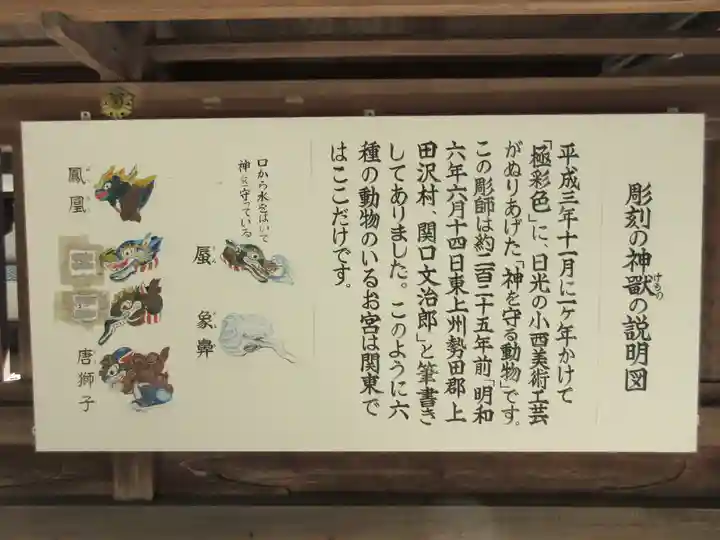 彫刻の神獣の説明図
けもの
平成三年十一月に一ヶ年かけて
「極彩色」に、日光の小西美術工芸
がぬりあげた「神を守る動物」です。
この彫師は約二百二十五年前「明和
六年六月十四日東上州勢田郡上
田沢村、関口文治郎」と筆書き
してありました。このように六
種の動物のいるお宮は関東で
はここだけです。
口から水をはいて
神を守っている
蜃
しん
象鼻
鳳凰
唐獅子